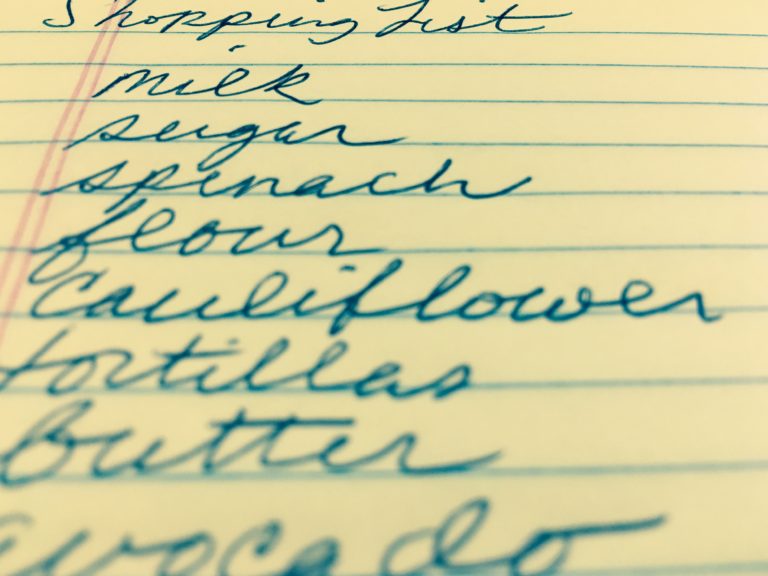 Shopping List
milk
sugar
spinach
flour
Cauliflower
tortillas
Butter
avocado